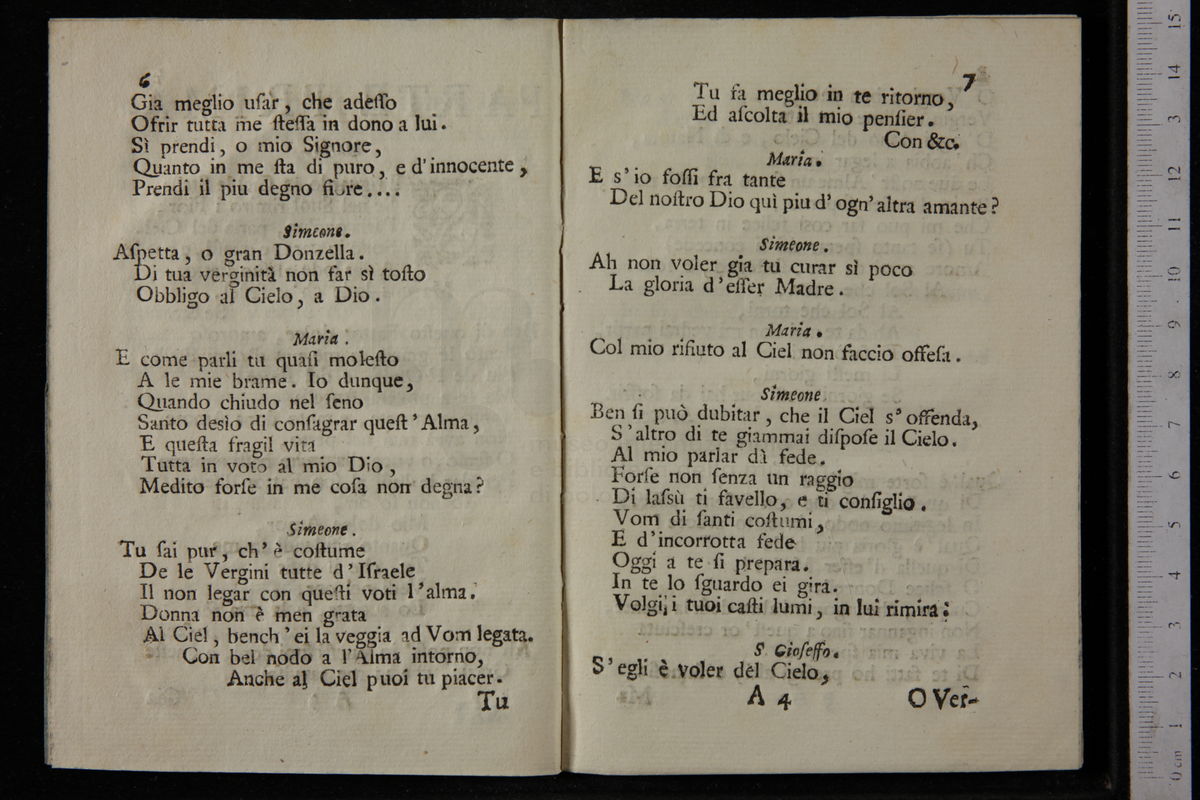 6
Gia meglio uſar, che adeſſo
Ofrir tutta me ſteſſa in dono a lui.
Sì prendi, o mio Signore,
Quanto in me ſta di puro, e d'innocente,
Prendi il piu degno fiore....
Simeone.
Aſpetta, o gran Donzella.
Di tua verginità non far sì toſto
Obbligo al Cielo, a Dio.
Maria.
E come parli tu quaſi moleſto
A le mie brame. Io dunque,
Quando chiudo nel ſeno
Santo desìo di conſagrar queſt'Alma,
E queſta fragil vita
Tutta in voto al mio Dio,
Medito forſe in me coſa non degna?
Simeone.
Tu ſai pur, ch'è coſtume
De le Vergini tutte d'Iſraele
Il non legar con queſti voti l'alma.
Donna non è men grata
Al Ciel, bench'ei la veggia ad Vom legata.
Con bel nodo a l'Alma intorno,
Anche al Ciel puoi tu piacer.
Tu
7
Tu fa meglio in te ritorno,
Ed aſcolta il mio penſier.
Con &c.
Maria.
E s'io foſſi fra tante
Del noſtro Dio quì piu d'ogn'altra amante?
Simeone.
Ah non voler gia tu curar sì poco
La gloria d'eſſer Madre.
Maria.
Col mio rifiuto al Ciel non faccio offeſa.
Simeone
Ben ſi può dubitar, che il Ciel s'offenda,
S'altro di te giammai diſpoſe il Cielo.
Al mio parlar dì fede.
Forſe non ſenza un raggio
Di laſsù ti favello, e ti conſiglio.
Vom di ſanti coſtumi,
E d'incorrotta fede
Oggi a te ſi prepara.
In te lo ſguardo ei gira.
Volgi i tuoi caſti lumi, in lui rimira:
S. Gioſeffo.
S'egli è voler del Cielo,
A 4
O Ver-
0 cm 1 2 3 4 5 6 7 8 9 10 11 12 13 14 15